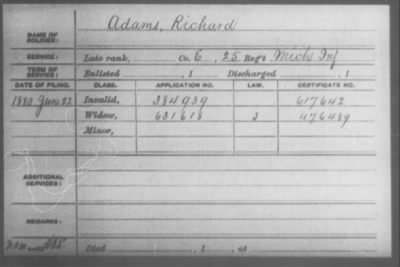 NAME OF SOLDIER: Adams, Richard
SERVICE: Late rank, Co. E, 25 Reg't Mich Inf
TERM OF SERVICE: Enlisted , 1 Discharged , 1
DATE OF FILING. CLASS. APPLICATION NO. LAW. CERTIFICATE NO.
1880 June 22 Invalid, 384939 617642
Widow, 631618 476489
Minor,
ADDITIONAL SERVICES:
REMARKS:
Died , 1 , at